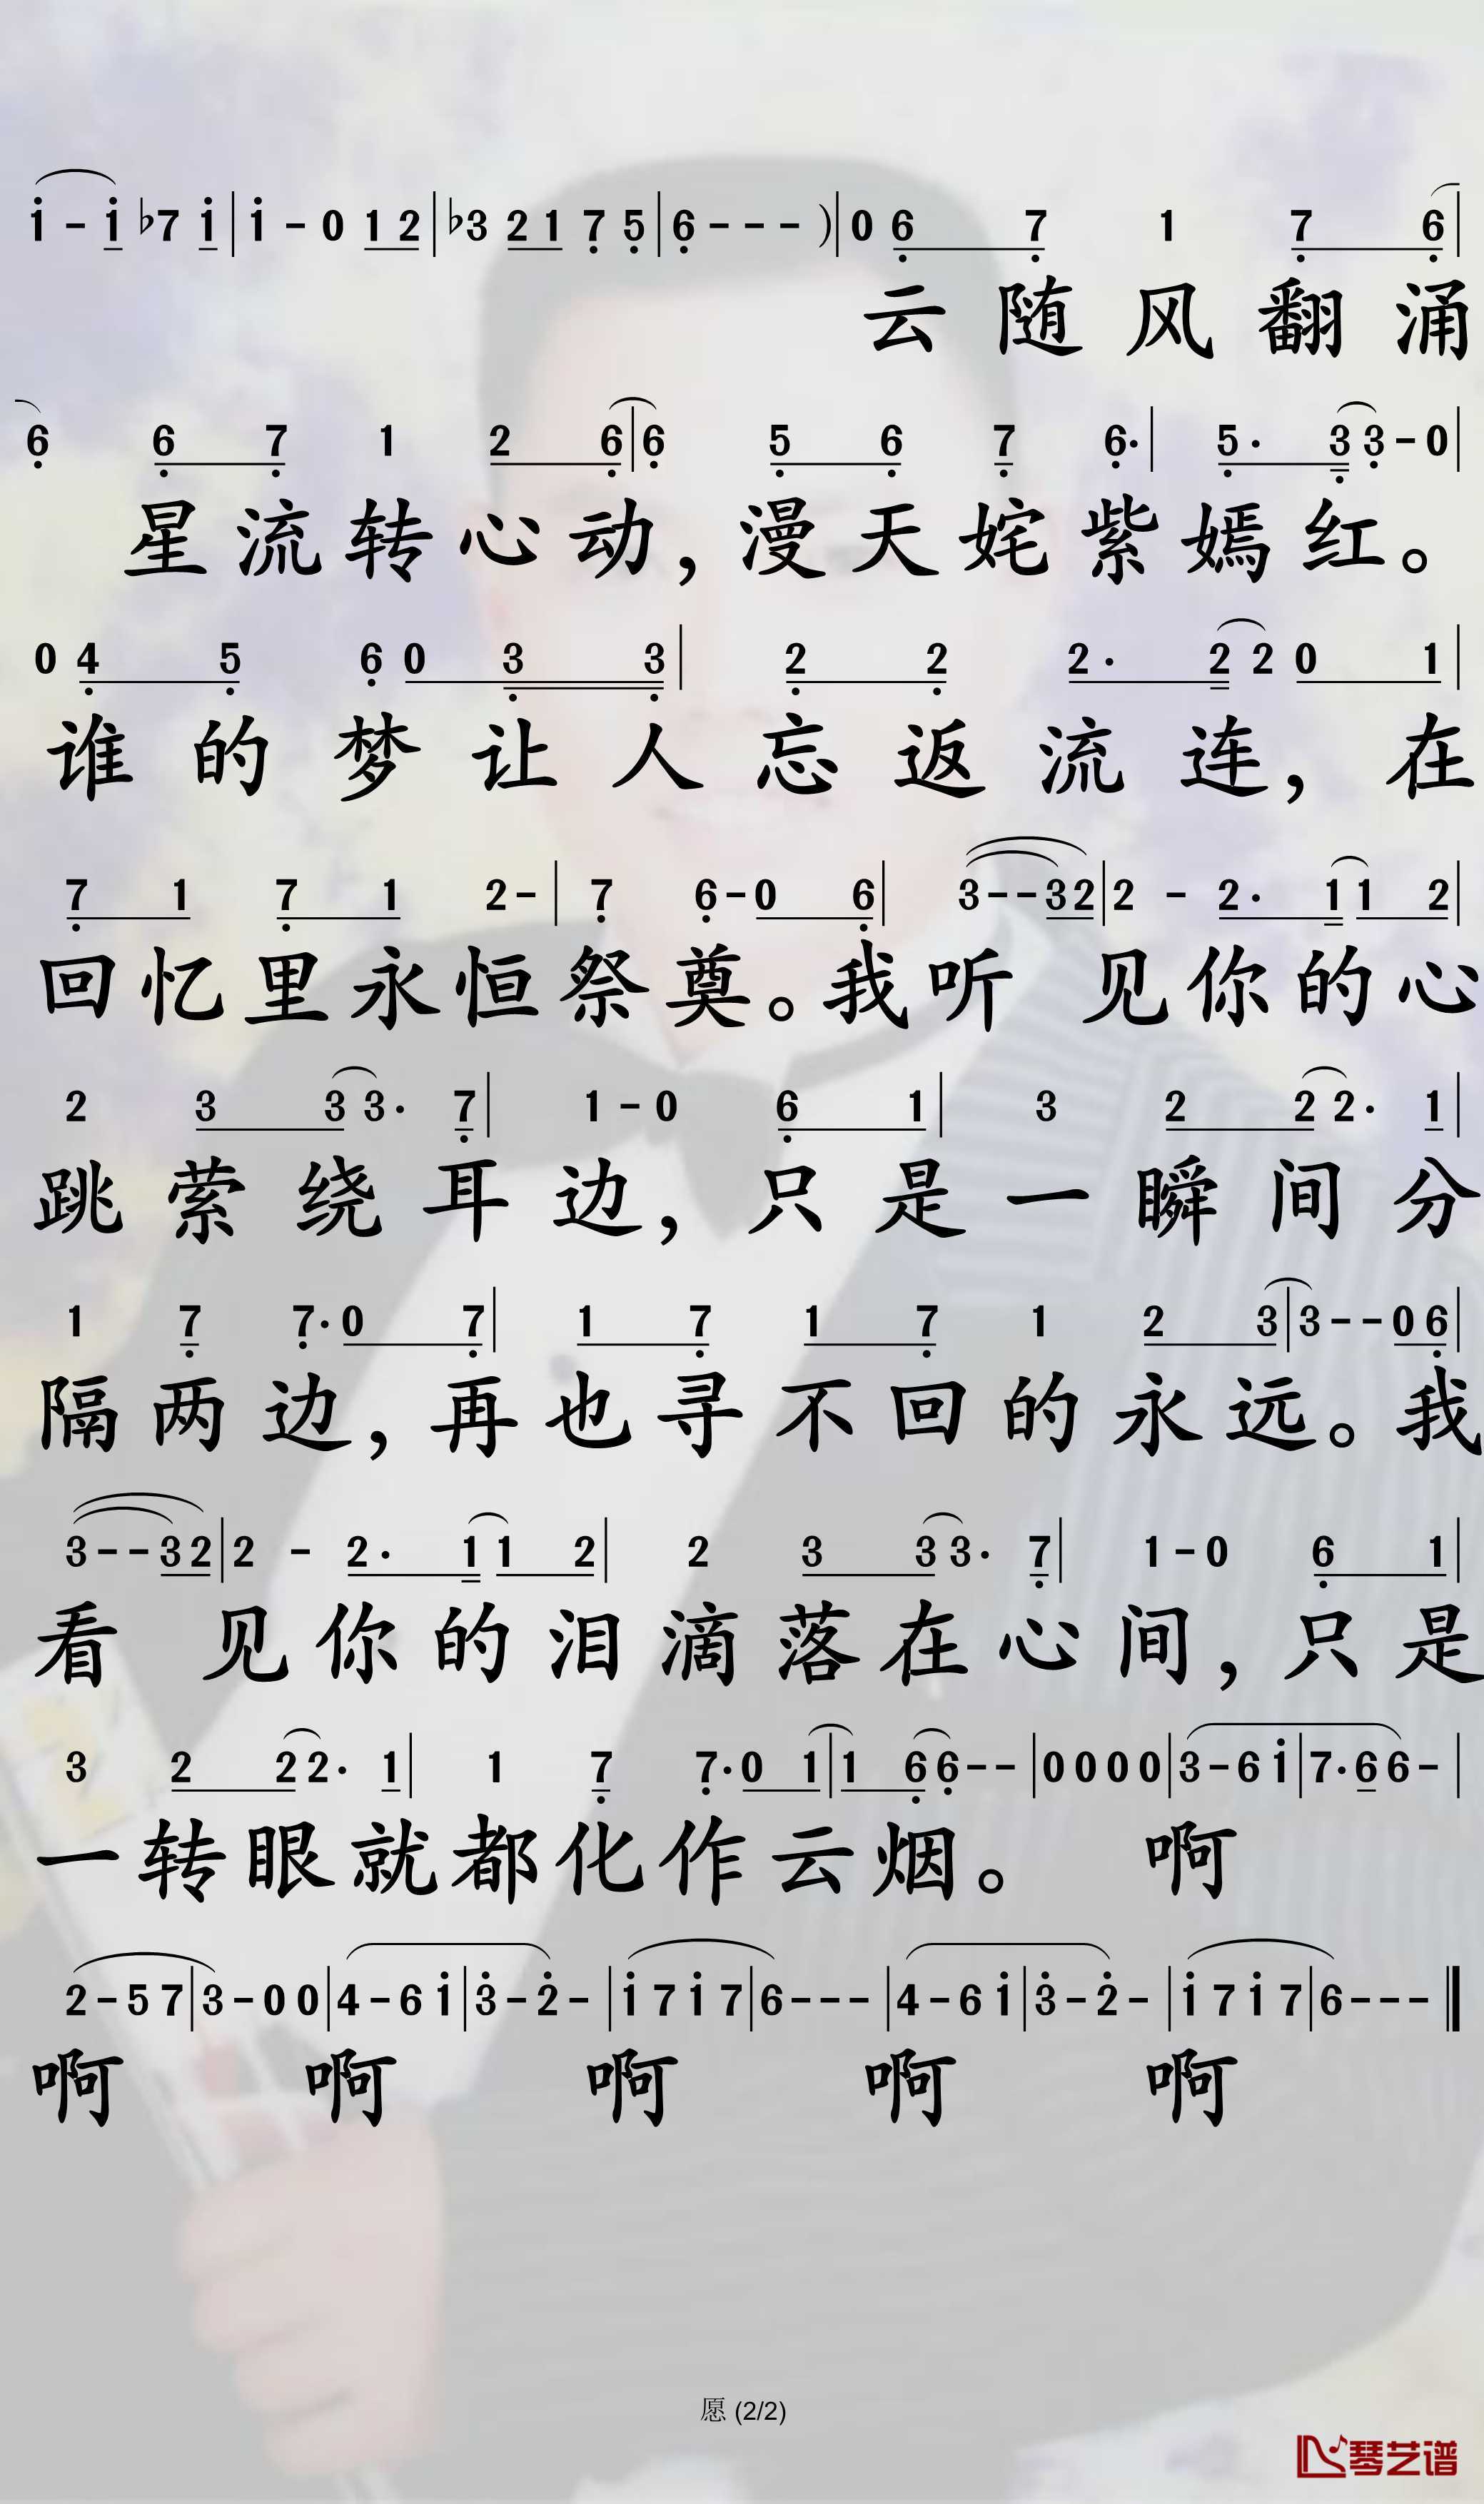 i - i ♭7 i | i - 0 1 2 | ♭3 2 1 7 5 | 6 - - - ) | 0 6 7 1 7 6 |
云随风翻涌
6 6 7 1 2 6 | 6 5 6 7 6· | 5· 3 3 - 0 |
星流转心动，漫天姹紫嫣红。
0 4 5 6 0 3 3 | 2 2 2· 2 2 0 1 |
谁的梦让人忘返流连，在
7 1 7 1 2 - | 7 6 - 0 6 | 3 - - 3 2 | 2 - 2· 1 1 2 |
回忆里永恒祭奠。我听 见你的心
2 3 3 3· 7 | 1 - 0 6 1 | 3 2 2 2· 1 |
跳萦绕耳边，只是一瞬间分
1 7 7· 0 7 | 1 7 1 7 1 2 3 | 3 - - 0 6 |
隔两边，再也寻不回的永远。我
3 - - 3 2 | 2 - 2· 1 1 2 | 2 3 3 3· 7 | 1 - 0 6 1 |
看 见你的泪滴落在心间，只是
3 2 2 2· 1 | 1 7 7· 0 1 | 1 6 6 - - | 0 0 0 0 | 3 - 6 i | 7· 6 6 - |
一转眼就都化作云烟。 啊
2 - 5 7 | 3 - 0 0 | 4 - 6 i | 3 - 2 - | i 7 i 7 | 6 - - - | 4 - 6 i | 3 - 2 - | i 7 i 7 | 6 - - - ‖
啊 啊 啊 啊 啊
愿 (2/2)
琴艺谱